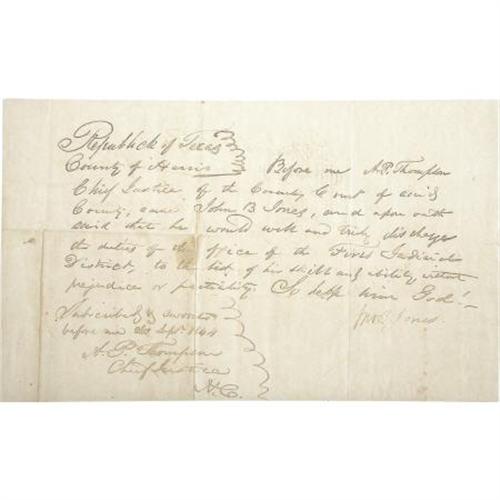 Republick of Texas
County of Harris Before me A. P. Thompson
Chief Justice of the County Court of said
County, came John B Jones, and upon oath
said that he would well and truly discharge
the duties of the office of the First Judicial
District, to the best of his skill and ability without
prejudice or partiality. So help him God! –
Jno B Jones
Subscribed & sworn to
before me Sept. 1844
A. P. Thompson
Chief Justice
H. C.